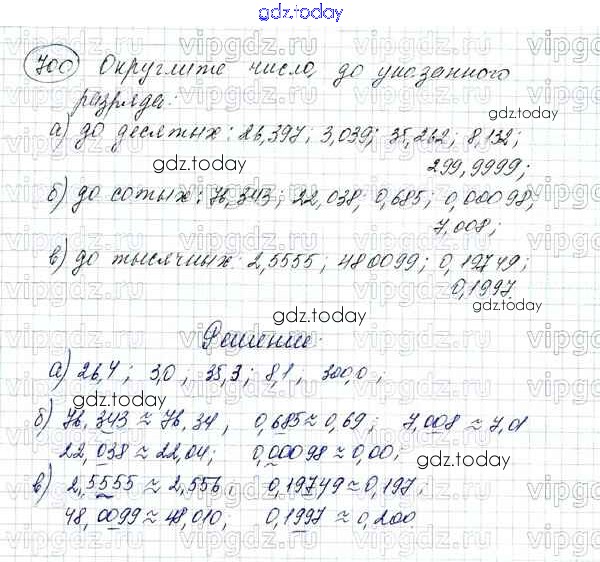 gdz.today
700 Округлите число, до указанного
разряда:
а) до десятых: 26,397; 3,039; 35,262; 8,132;
gdz.today
299,9999;
б) до сотых: 76,343; 22,038; 0,685; 0,00098;
gdz.today
7,008;
в) до тысячных: 2,5555; 480099; 0,19749;
0,1997.
gdz.today
Решение:
а) 26,4; 3,0; 35,3; 8,1; 300,0;
gdz.today
б) 76,343 ≈ 76,34, 0,685 ≈ 0,69; 7,008 ≈ 7,01
22,038 ≈ 22,04; 0,00098 ≈ 0,00;
gdz.today
в) 2,5555 ≈ 2,556; 0,19749 ≈ 0,197;
48,0099 ≈ 48,010; 0,1997 ≈ 0,200
gdz.today
vipgdz.ru